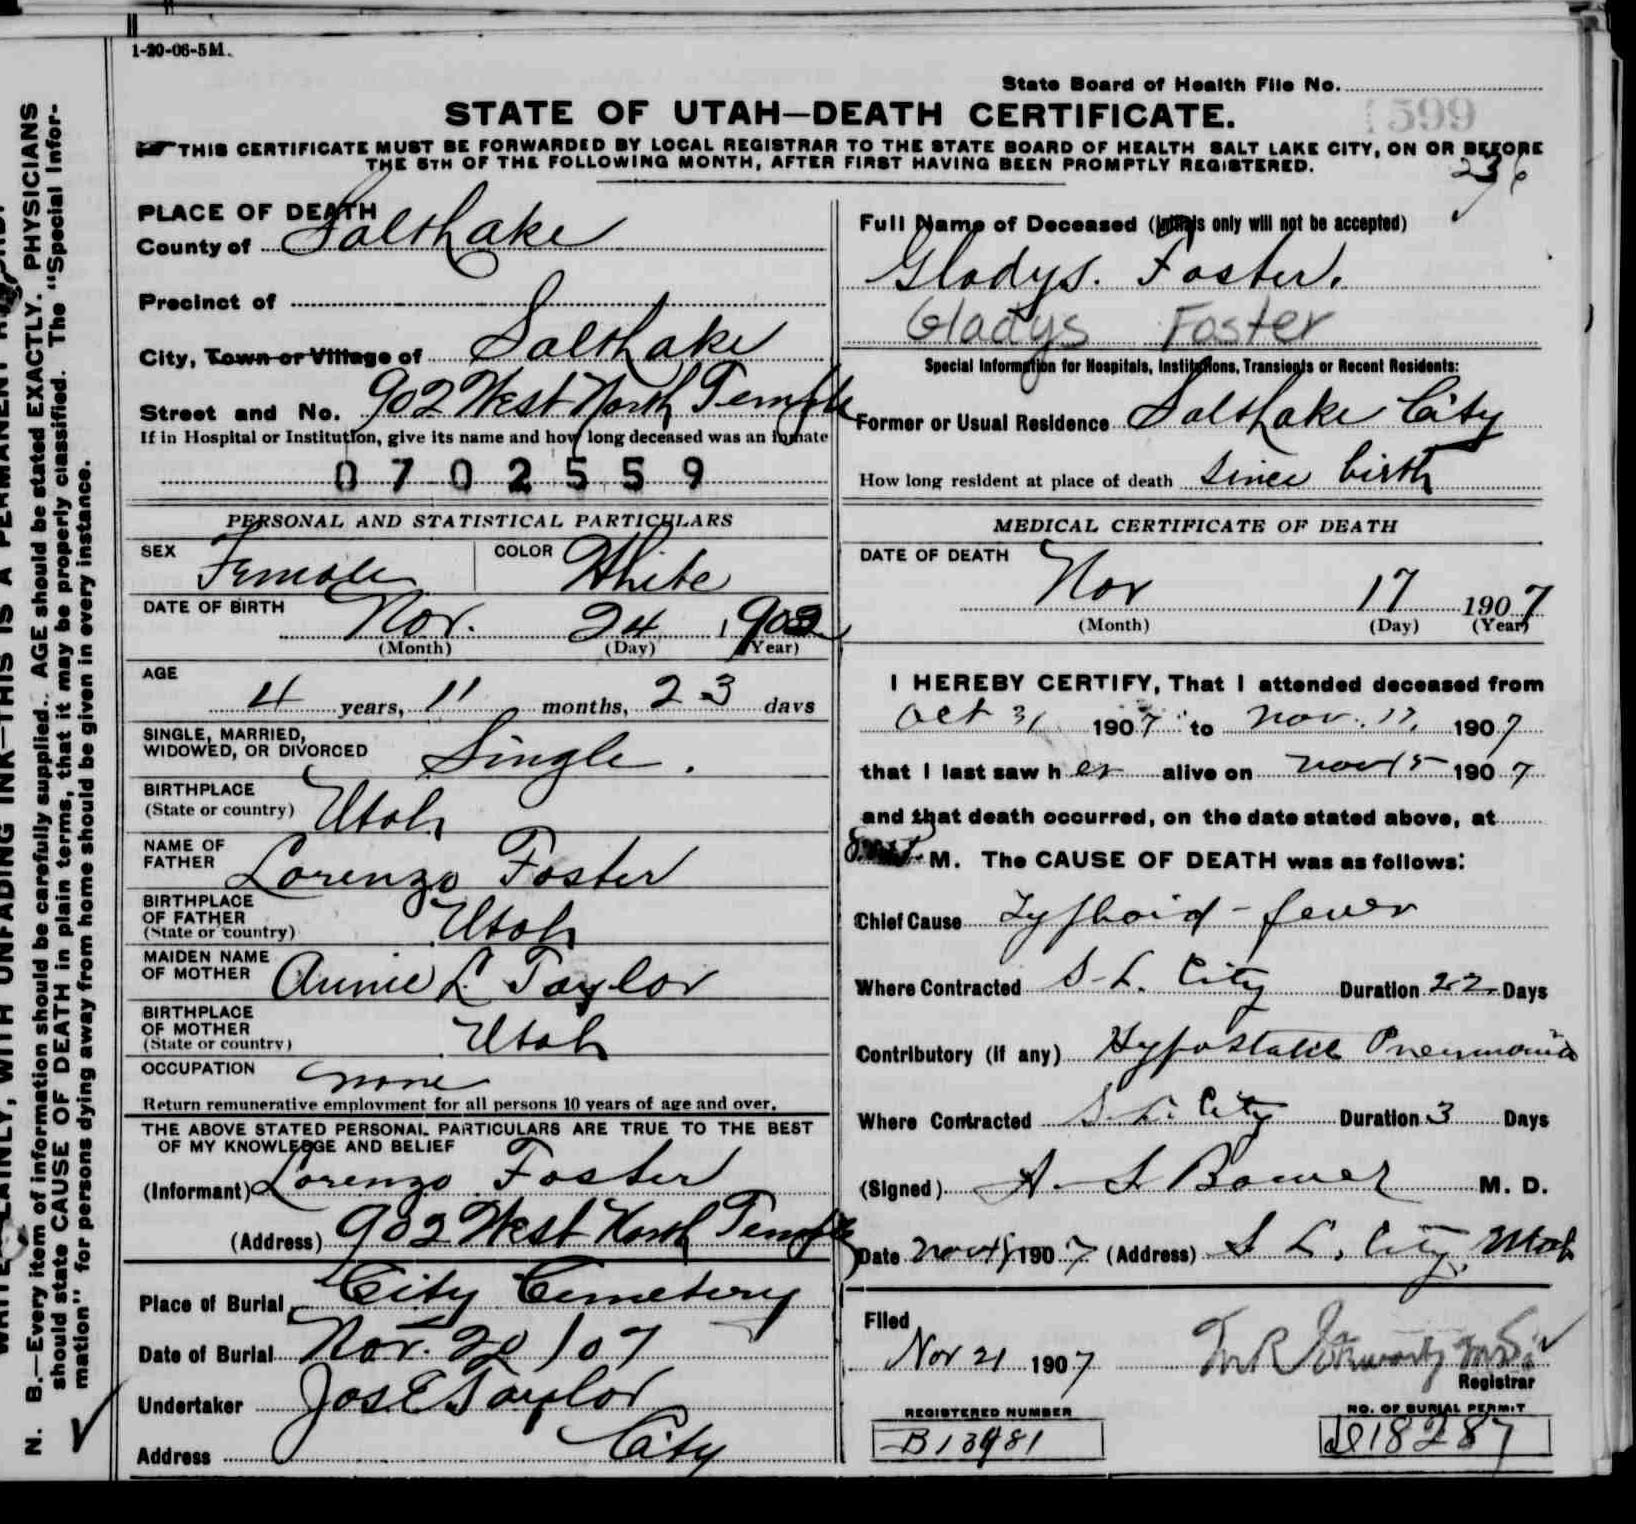 1-20-06-5M.
State Board of Health File No.
1599
STATE OF UTAH—DEATH CERTIFICATE.
THIS CERTIFICATE MUST BE FORWARDED BY LOCAL REGISTRAR TO THE STATE BOARD OF HEALTH SALT LAKE CITY, ON OR BEFORE
THE 5TH OF THE FOLLOWING MONTH, AFTER FIRST HAVING BEEN PROMPTLY REGISTERED.
236
PLACE OF DEATH
County of Salt Lake
Precinct of
City, Town or Village of Salt Lake
Street and No. 902 West North Temple
If in Hospital or Institution, give its name and how long deceased was an inmate
0702559
PERSONAL AND STATISTICAL PARTICULARS
SEX Female COLOR White
DATE OF BIRTH Nov. 24 1902
(Month) (Day) (Year)
AGE
4 years, 11 months, 23 days
SINGLE, MARRIED,
WIDOWED, OR DIVORCED Single.
BIRTHPLACE
(State or country) Utah
NAME OF
FATHER Lorenzo Foster
BIRTHPLACE
OF FATHER
(State or country) Utah
MAIDEN NAME
OF MOTHER Annie L. Taylor
BIRTHPLACE
OF MOTHER
(State or country) Utah
OCCUPATION none
Return remunerative employment for all persons 10 years of age and over.
THE ABOVE STATED PERSONAL PARTICULARS ARE TRUE TO THE BEST
OF MY KNOWLEDGE AND BELIEF
(Informant) Lorenzo Foster
(Address) 902 West North Temple
Place of Burial City Cemetery
Date of Burial Nov. 20 / 07
Undertaker Jos E Taylor
Address City
Full Name of Deceased (Initials only will not be accepted)
Gladys. Foster.
Gladys Foster
Special Information for Hospitals, Institutions, Transients or Recent Residents:
Former or Usual Residence Salt Lake City
How long resident at place of death Since birth
MEDICAL CERTIFICATE OF DEATH
DATE OF DEATH
Nov 17 1907
(Month) (Day) (Year)
I HEREBY CERTIFY, That I attended deceased from
Oct 31 1907 to Nov. 17, 1907
that I last saw her alive on Nov 15 1907
and that death occurred, on the date stated above, at
M. The CAUSE OF DEATH was as follows:
Chief Cause Typhoid-fever
Where Contracted S. L. City Duration 22 Days
Contributory (if any) Hypostatic Pneumonia
Where Contracted S. L. City Duration 3 Days
(Signed) M. D.
Date Nov 1907 (Address) S L. City, Utah
Filed
Nov 21 1907
Registrar
REGISTERED NUMBER
NO. OF BURIAL PERMIT
18287
N. B.—Every item of information should be carefully supplied. AGE should be stated EXACTLY. PHYSICIANS
should state CAUSE OF DEATH in plain terms, that it may be properly classified. The "Special Infor-
mation" for persons dying away from home should be given in every instance.